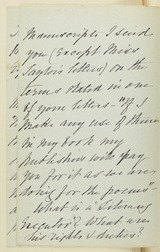 Manuscripts I send
you (Except Miss
Taylor's letters) on the
terms stated in one
of your letters - "If I
make any use of them
in my book my
publishers will pay
you for it as we are
doing for the poems" -
What is a "Literary
Executor"? What are
his rights & duties?